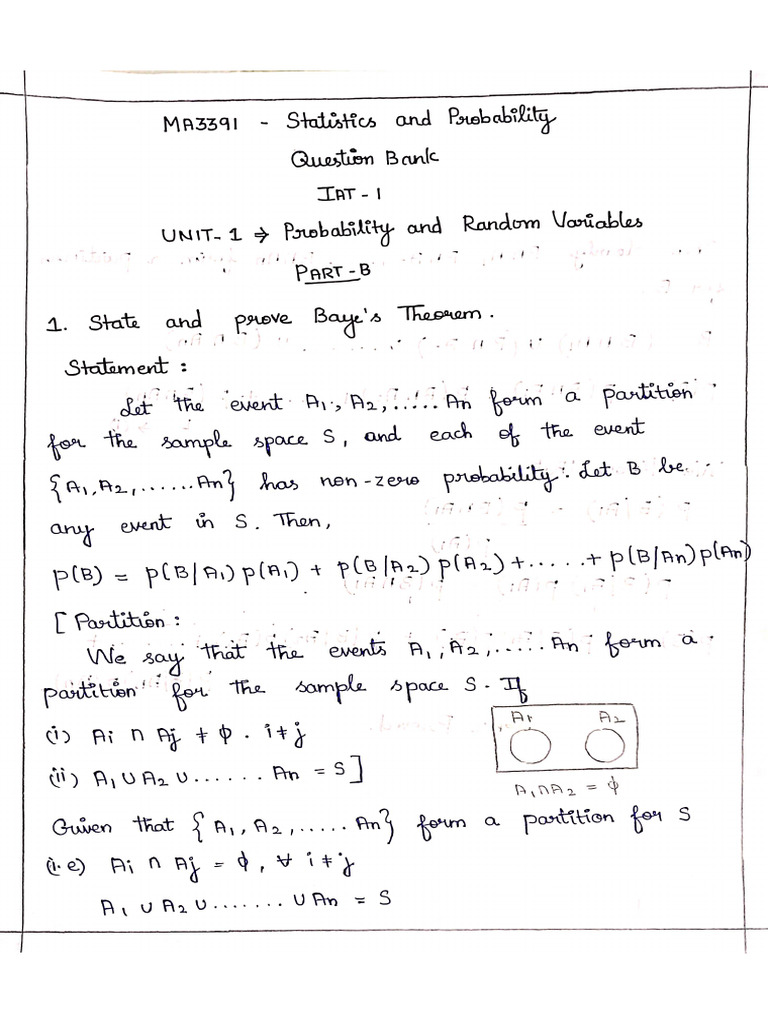 MA3391 - Statistics and Probability
Question Bank
IAT - 1
UNIT - 1 ⇒ Probability and Random Variables
PART - B
1. State and prove Baye's Theorem.
Statement :
Let the event A1, A2, ..... An form a partition
for the sample space S, and each of the event
{A1, A2, ...... An} has non-zero probability. Let B be
any event in S. Then,
P(B) = P(B/A1) P(A1) + P(B/A2) P(A2) + ..... + P(B/An) P(An)
[ Partition :
We say that the events A1, A2, ..... An form a
partition for the sample space S. If
(i) Ai ∩ Aj ≠ ϕ . i ≠ j
(ii) A1 ∪ A2 ∪ ...... An = S ]
A1 A2
A1 ∩ A2 = ϕ
Given that {A1, A2, ..... An} form a partition for S
(i.e) Ai ∩ Aj = ϕ, ∀ i ≠ j
A1 ∪ A2 ∪ ....... ∪ An = S